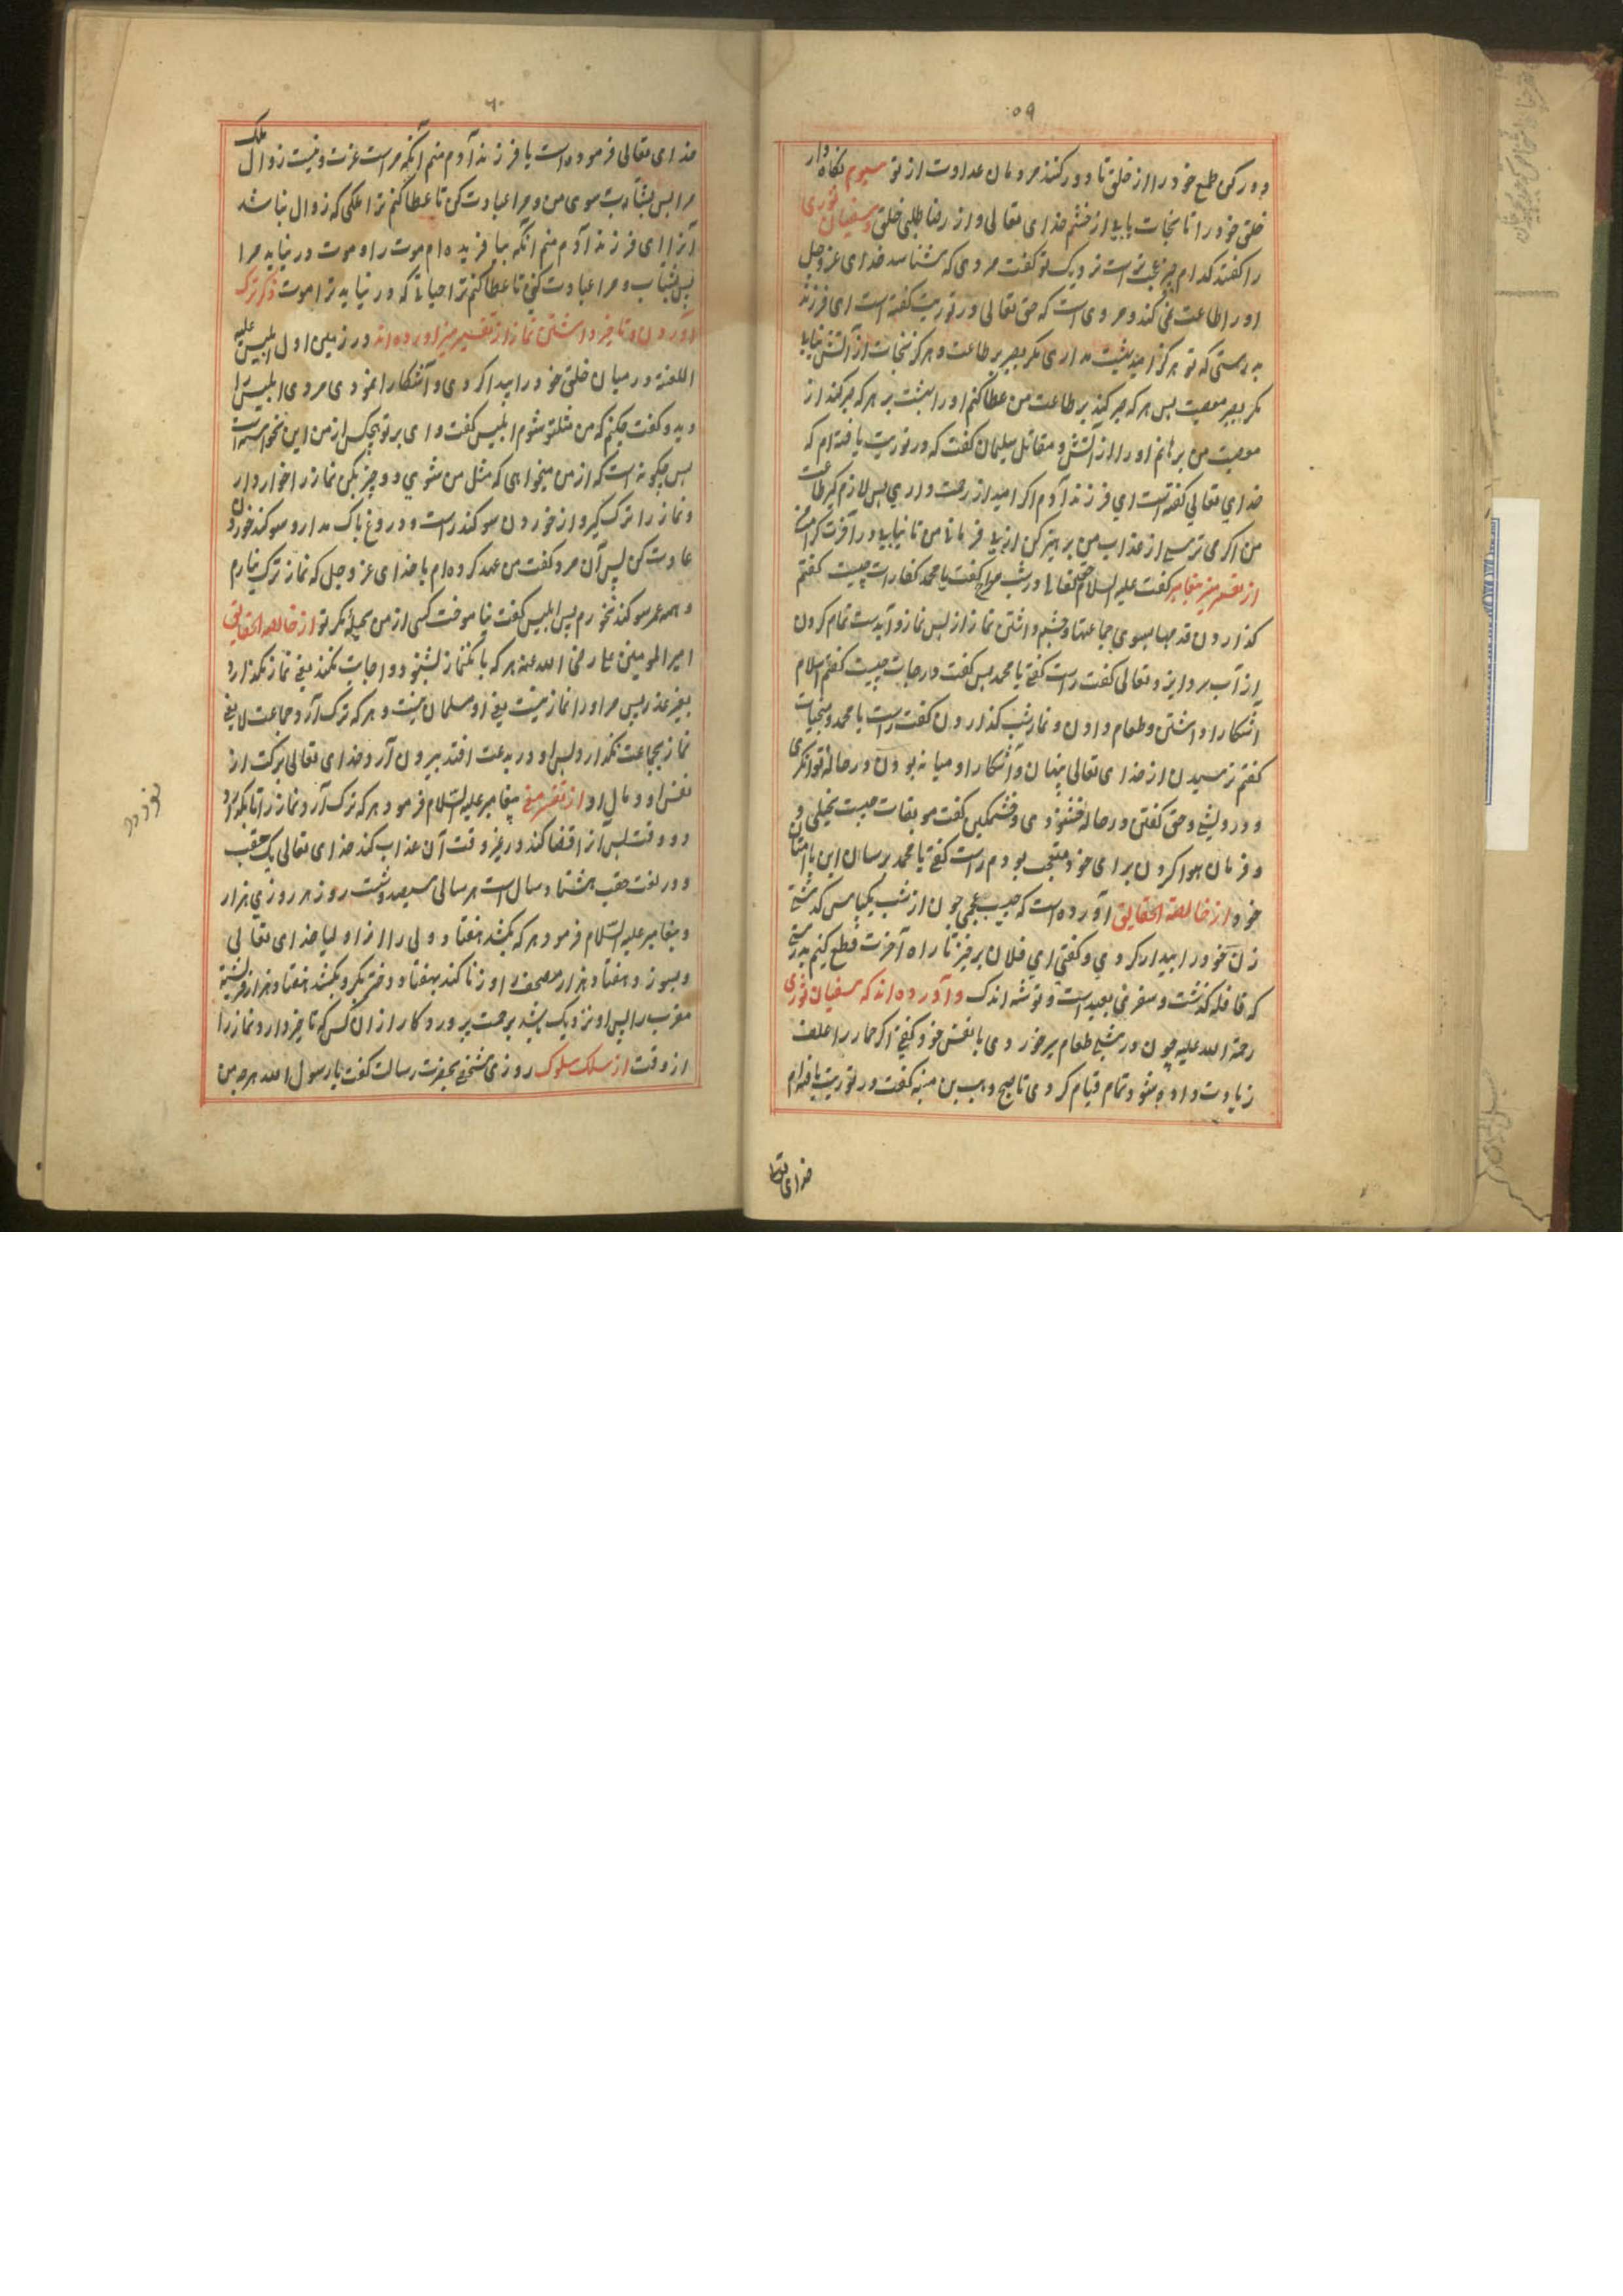 ۵۹
دور کن طمع خود را از خلق تا دور کنند مردمان عداوت از تو سیوم نکاه دار
خلق خود را تا نجات یابی از خشم خدای تعالی و از رضا طلبی خلق و سفیان ثوری
را کفتند کدام چیز عجبتر است نزدیک تو کفت مردی که بشناسد خدای عز و جل
او را طاعت نمی کند و مروی است که حق تعالی در توریت کفته است ای فرزند
بدرستی که تو هرکز امید بهشت نداری مکر بصبر بر طاعت و هرکز نجات از آتش نیابی
مکر بصبر معصیت پس هر که صبر کند بر طاعت من عطا کنم او را بهشت و هر که صبر کند از
معصیت من برهانم او را از آتش و مقاتل سلیمان کفت که در توریت یافته ام که
خدای تعالی کفته است ای فرزند آدم اکر امید از رحمت داری پس لازم کیر طاعت
من اکر می ترسی از عذاب من پرهیز کن از بی فرمانی من تا نیابی در آخرت
از تفسیر منیر پیغامبر کفت علیه السلام حق تعالی در شب معراج کفت یا محمد کفارات چیست کفتم
کذاردن قدمها بسوی جماعتها و چشم داشتن نماز از پس نماز و آبدست تمام کردن
از آب سرد ایزد تعالی کفت راست کفتی یا محمد پس کفت درجات چیست کفتم سلام
آشکارا داشتن و طعام دادن و نماز شب کذاردن کفت راست یا محمد و منجیات
کفتم ترسیدن از خدای تعالی پنهان و آشکارا و میانه بودن در حالة توانکری
و درویشی و حق کفتن در حالة خشنودی و خشمکین کفت موبقات چیست بخیلی و
و فرمان هوا کردن برای خود معجب بودم راست کفتی یا محمد برسان این با امتان
خود از خالصة الحقایق آورده است که حبیب عجمی چون از شب یکپاس کذشتی
زن خود را بیدار کردی و کفتی ای فلان برخیز تا راه آخرت قطع کنیم بدرستی
که قافله کذشت و سفر من بعید است و توشه اندک و آورده اند که سفیان ثوری
رحمة الله علیه چون در شبی طعام سیر خوردی با نفس خود کفتی اکر حمار را علف
زیادت داده شود تمام قیام کردی تا صبح وهب بن منبه کفت در توریت یافته ام
خدای تعا
۶۰
خدای تعالی فرموده است یا فرزند آدم منم آنکه مراست عزت و نیست زوال ملک
مرا پس بشتاب سوی من و مرا عبادت کن تا عطا کنم ترا ملکی که زوال نباشد
آنرا ای فرزند آدم منم آنکه بیافریده ام موت را و موت در نیابد مرا
پس بشتاب و مرا عبادت کن تا عطا کنم ترا حیاتی که در نیابد ترا موت ذکر ترک
آوردن و تاخیر داشتن نماز از تفسیر منیر آورده اند در زمین اول ابلیس علیه
اللعنة در میان خلق خود را پیدا کردی و آشکارا نمودی مردی ابلیس را
دید و کفت چکنم که من مثل تو شوم ابلیس کفت وای بر تو هیچکس از من این نخواسته است
پس چکونه است که از من میخواهی که مثل من شوی دو چیز بکن نماز را خوار دار
و نماز را ترک کیر و از خوردن سوکند راست و دروغ باک مدار و سوکند خوردن
عادت کن پس آن مرد کفت من عهد کرده ام با خدای عز و جل که نماز ترک نیارم
و همه عمر سوکند نخورم پس ابلیس کفت نیاموخت کسی از من بحیله مکر تو از خالصة الحقایق
امیر المومنین علی رضی الله عنه هر که بانک نماز بشنود و اجابت نکند یعنی نماز نکذارد
بغیر عذر پس مر او را نماز نیست یعنی او مسلمان نیست و هر که ترک آرد جماعت را یعنی
نماز بجماعت نکذارد پس او در بدعت افتد بیرون آرد خدای تعالی برکت از
نفس او و مال او از تفسیر منیر پیغامبر علیه السلام فرمود هر که ترک آرد نماز را تا بکذرد
دو وقت پس آنرا قضا کند در غیر وقت آن عذاب کند خدای تعالی یک حقب
و در لغت حقب هشتاد سال است هر سالی سیصد و شصت روز هر روزی هزار
و پیغامبر علیه السلام فرمود هر که بکشد هفتاد ولی را از اولیا خدای تعالی
و بسوزد هفتاد هزار مصحف و زنا کند بهفتاد دختر بکر و بکشد هفتاد هزار فرشتة
مقرب را پس او نزدیک باشد برحمت پروردکار از آن کس که تاخیر دارد نماز را
از وقت از سلک سلوک روزی شخصی بحضرت رسالت کفت یا رسول الله هر چه من